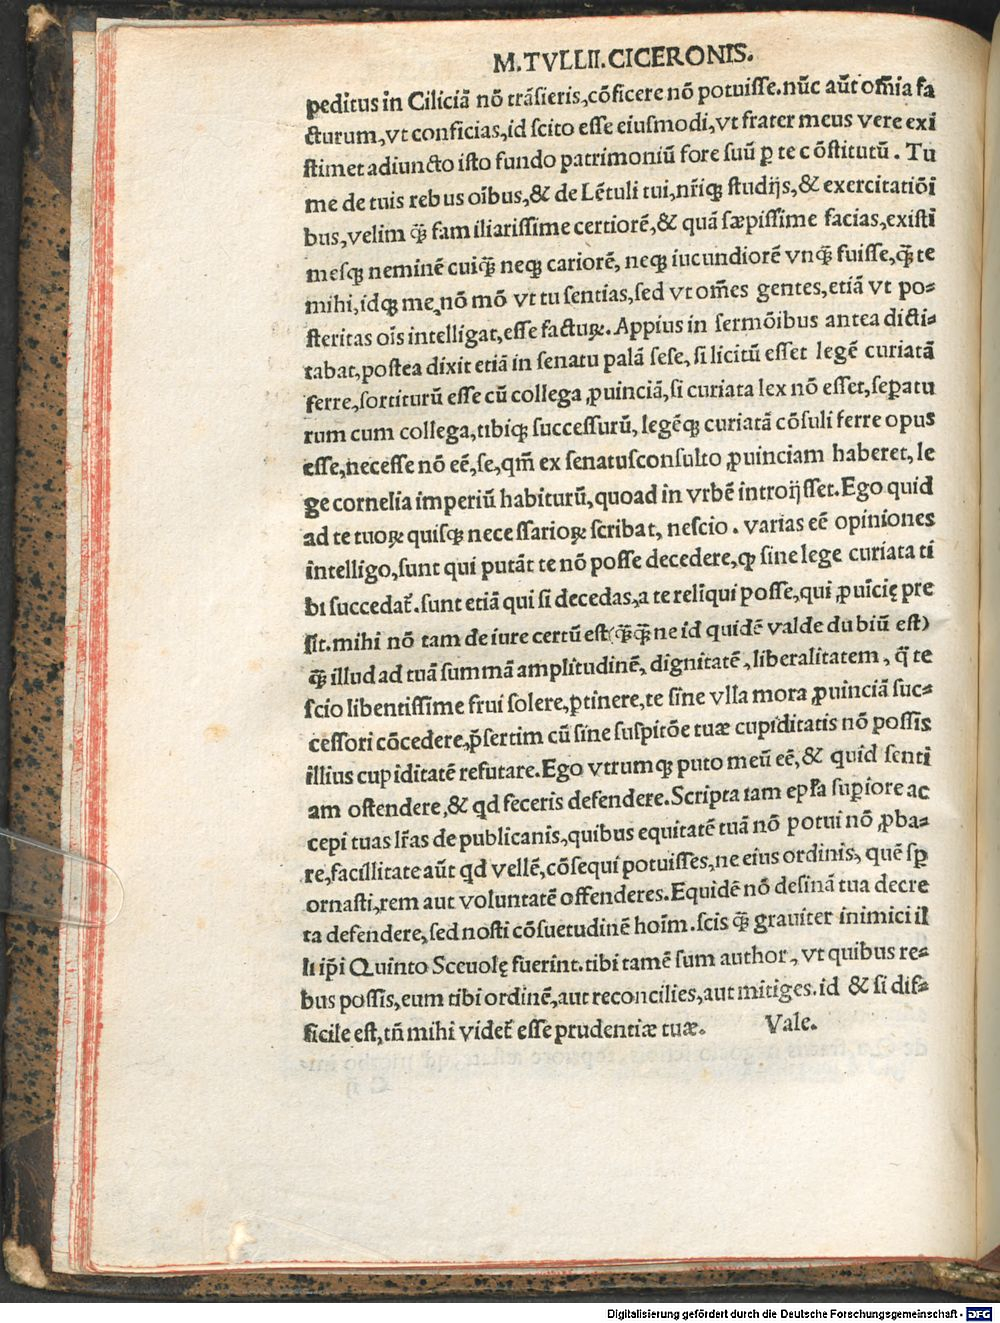 M.TVLLII.CICERONIS.
peditus in Ciliciā nō trāsieris,cōficere nō potuisse.nūc aūt om̄ia fa
cturum,vt conficias,id scito esse eiusmodi,vt frater meus vere exi
stimet adiuncto isto fundo patrimoniū fore suū ꝑ te cōstitutū. Tu
me de tuis rebus oībus,& de Lētuli tui,nr̄iqꝫ studijs,& exercitatiōi
bus,velim q̄ꝫ familiarissime certiorē,& quā sæpissime facias,existi
mesqꝫ neminē cuiq̄ꝫ neqꝫ cariorē, neqꝫ iucundiorē vnq̄ꝫ fuisse,q̄ꝫ te
mihi,idqꝫ me,nō mō vt tu sentias,sed vt om̄es gentes,etiā vt po⸗
steritas oīs intelligat,esse factuꝝ. Appius in sermōibus antea dicti⸗
tabat,postea dixit etiā in senatu palā sese, si licitū esset legē curiatā
ferre,sortiturū esse cū collega ꝓuinciā,si curiata lex nō esset,seꝑatu
rum cum collega,tibiqꝫ successurū, legēqꝫ curiatā cōsuli ferre opus
esse,necesse nō eē,se,qm̄ ex senatusconsulto ꝓuinciam haberet, le
ge cornelia imperiū habiturū,quoad in vrbē introijsset.Ego quid
ad te tuoꝝ quisqꝫ necessarioꝝ scribat, nescio. varias eē opiniones
intelligo,sunt qui putāt te nō posse decedere,ꝙ sine lege curiata ti
bi succedat̄.sunt etiā qui si decedas,a te relīqui posse,qui ꝓuīcię pre
sit.mihi nō tam de iure certū est(q̄ꝫq̄ꝫ ne id quidē valde dubiū est)
q̄ꝫ illud ad tuā summā amplitudinē, dignitatē,liberalitatem, q̄ te
scio libentissime frui solere,ꝑtinere,te sine vlla mora ꝓuinciā suc⸗
cessori cōcedere,p̄sertim cū sine suspitōe tuæ cupiditatis nō possis
illius cupiditatē refutare.Ego vtrumqꝫ puto meū eē,& quid senti
am ostendere,& qd feceris defendere.Scripta iam epl̄a suꝑiore ac
cepi tuas lr̄as de publicanis,quibus equitatē tuā nō potui nō ꝓba⸗
re,facillitate aūt qd vellē,cōsequi potuisses,ne eius ordinis, quē sꝑ
ornasti,rem aut voluntatē offenderes.Equidē nō desinā tua decre
ta defendere,sed nosti cōsuetudinē hoīm.scis q̄ꝫ grauiter inimici il
li ip̄i Quinto Sceuolę fuerint.tibi tamē sum author, vt quibus re⸗
bus possis,eum tibi ordinē,aut reconcilies,aut mitiges.id & si dif⸗
ficile est,tn̄ mihi videt̄ esse prudentiæ tuæ. Vale.
Digitalisierung gefördert durch die Deutsche Forschungsgemeinschaft - DFG